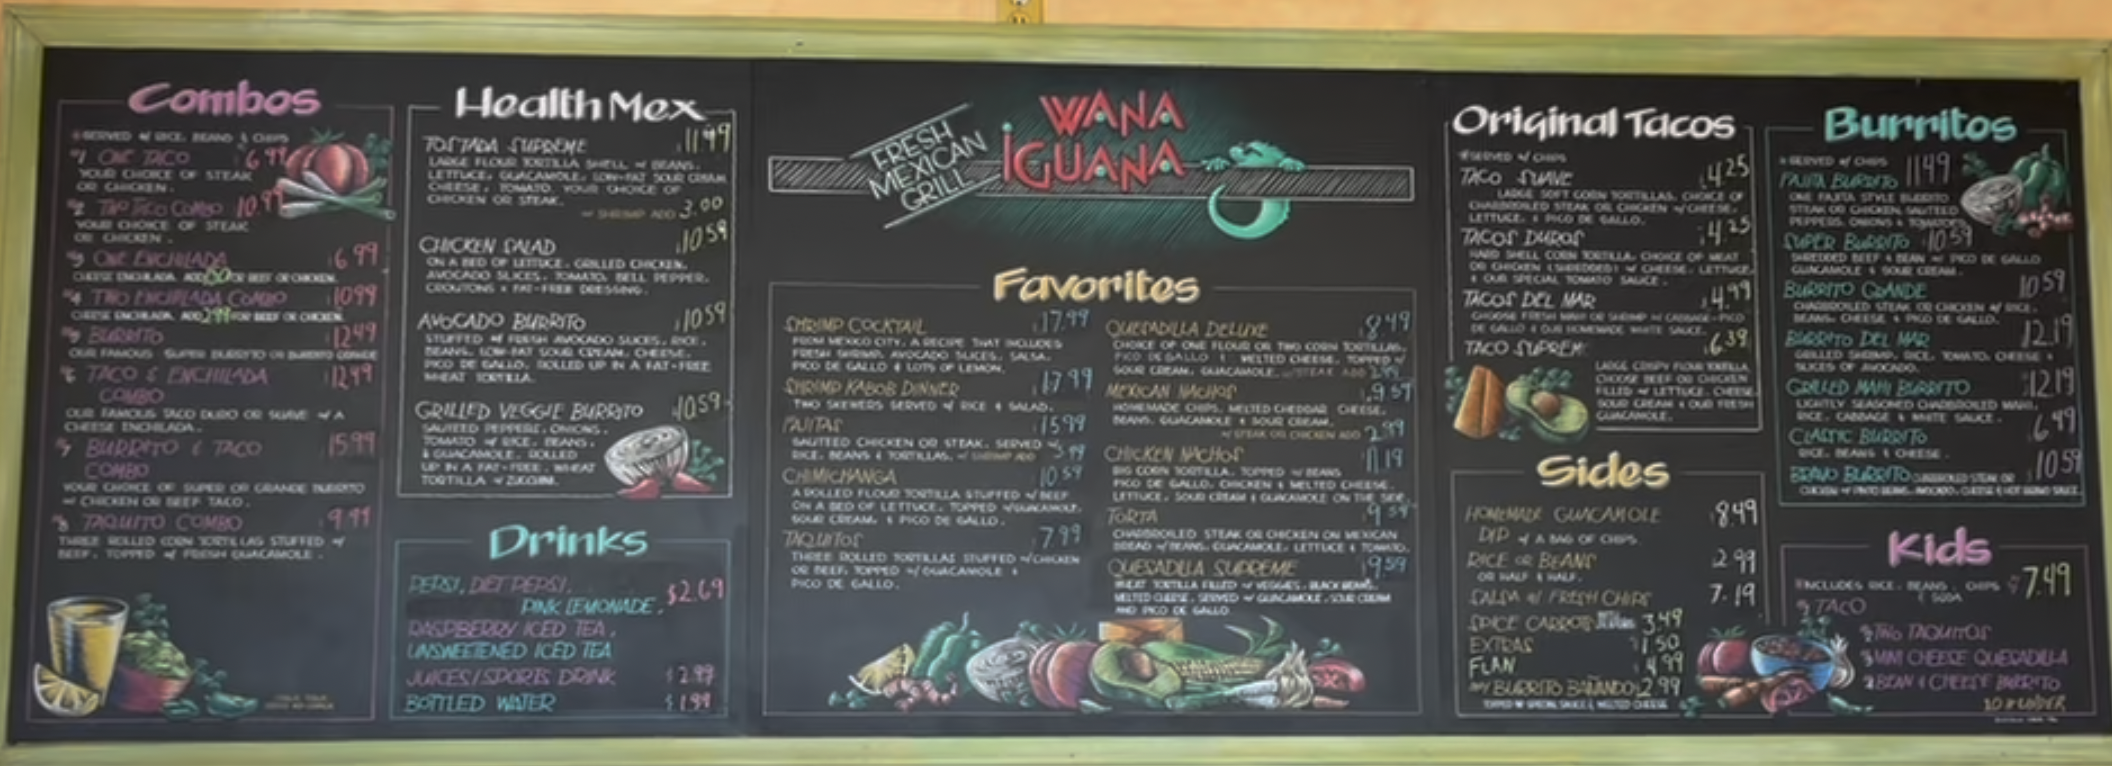 Combos
*SERVED W/ RICE, BEANS & CHIPS
#1 ONE TACO 6.99
YOUR CHOICE OF STEAK
OR CHICKEN.
#2 TWO TACO COMBO 10.99
YOUR CHOICE OF STEAK
OR CHICKEN.
#3 ONE ENCHILADA 6.99
CHEESE ENCHILADA. ADD FOR BEEF OR CHICKEN.
#4 TWO ENCHILADA COMBO 10.99
CHEESE ENCHILADA. ADD 2.99 FOR BEEF OR CHICKEN.
#5 BURRITO 12.49
OUR FAMOUS SUPER BURRITO OR BURRITO GRANDE
#6 TACO & ENCHILADA 12.49
COMBO
OUR FAMOUS TACO DURO OR SUAVE W/ A
CHEESE ENCHILADA.
#7 BURRITO & TACO 15.99
COMBO
YOUR CHOICE OF SUPER OR GRANDE BURRITO
W/ CHICKEN OR BEEF TACO.
#8 TAQUITO COMBO 9.99
THREE ROLLED CORN TORTILLAS STUFFED W/
BEEF, TOPPED W/ FRESH GUACAMOLE.
Health Mex
TOSTADA SUPREME 11.99
LARGE FLOUR TORTILLA SHELL W/ BEANS,
LETTUCE, GUACAMOLE, LOW-FAT SOUR CREAM,
CHEESE, TOMATO. YOUR CHOICE OF
CHICKEN OR STEAK.
W/ SHRIMP ADD 3.00
CHICKEN SALAD 10.59
ON A BED OF LETTUCE, GRILLED CHICKEN,
AVOCADO SLICES, TOMATO, BELL PEPPER,
CROUTONS & FAT-FREE DRESSING.
AVOCADO BURRITO 10.59
STUFFED W/ FRESH AVOCADO SLICES, RICE,
BEANS, LOW-FAT SOUR CREAM, CHEESE,
PICO DE GALLO, ROLLED UP IN A FAT-FREE
WHEAT TORTILLA.
GRILLED VEGGIE BURRITO 10.59
SAUTEED PEPPERS, ONIONS,
TOMATO W/ RICE, BEANS,
& GUACAMOLE, ROLLED
UP IN A FAT-FREE, WHEAT
TORTILLA W/ ZUCCHINI.
Drinks
PEPSI, DIET PEPSI,
PINK LEMONADE, $2.69
RASPBERRY ICED TEA,
UNSWEETENED ICED TEA
JUICES/SPORTS DRINK $2.99
BOTTLED WATER $1.99
FRESH MEXICAN GRILL
WANA
IGUANA
Favorites
SHRIMP COCKTAIL 17.99
FROM MEXICO CITY, A RECIPE THAT INCLUDES
FRESH SHRIMP, AVOCADO SLICES, SALSA,
PICO DE GALLO & LOTS OF LEMON.
SHRIMP KABOB DINNER 17.99
TWO SKEWERS SERVED W/ RICE & SALAD.
FAJITAS 15.99
SAUTEED CHICKEN OR STEAK, SERVED W/
RICE, BEANS & TORTILLAS. W/ SHRIMP ADD
CHIMICHANGA 10.59
A ROLLED FLOUR TORTILLA STUFFED W/ BEEF
ON A BED OF LETTUCE, TOPPED W/GUACAMOLE,
SOUR CREAM, & PICO DE GALLO.
TAQUITOS 7.99
THREE ROLLED TORTILLAS STUFFED W/CHICKEN
OR BEEF, TOPPED W/ GUACAMOLE &
PICO DE GALLO.
QUESADILLA DELUXE 8.49
CHOICE OF ONE FLOUR OR TWO CORN TORTILLAS,
PICO DE GALLO & MELTED CHEESE, TOPPED W/
SOUR CREAM, GUACAMOLE. W/STEAK ADD 2.99
MEXICAN NACHOS 9.59
HOMEMADE CHIPS, MELTED CHEDDAR CHEESE,
BEANS, GUACAMOLE & SOUR CREAM.
W/ STEAK OR CHICKEN ADD 2.99
CHICKEN NACHOS 11.19
BIG CORN TORTILLA, TOPPED W/ BEANS
PICO DE GALLO, CHICKEN & MELTED CHEESE,
LETTUCE, SOUR CREAM & GUACAMOLE ON THE SIDE.
TORTA 9.59
CHARBROILED STEAK OR CHICKEN ON MEXICAN
BREAD W/BEANS, GUACAMOLE, LETTUCE & TOMATO.
QUESADILLA SUPREME 9.59
WHEAT TORTILLA FILLED W/ VEGGIES, BLACK BEANS,
MELTED CHEESE, SERVED W/ GUACAMOLE, SOUR CREAM
AND PICO DE GALLO
Original Tacos
*SERVED W/ CHIPS
TACO SUAVE 4.25
LARGE SOFT CORN TORTILLAS, CHOICE OF
CHARBROILED STEAK OR CHICKEN W/CHEESE,
LETTUCE, & PICO DE GALLO.
TACOS DUROS 4.25
HARD SHELL CORN TORTILLA, CHOICE OF MEAT
OR CHICKEN (SHREDDED) W/ CHEESE, LETTUCE,
& OUR SPECIAL TOMATO SAUCE.
TACOS DEL MAR 4.99
CHOOSE FRESH MAHI OR SHRIMP W/ CABBAGE, PICO
DE GALLO & OUR HOMEMADE WHITE SAUCE.
TACO SUPREME 6.39
LARGE CRISPY FLOUR TORTILLA
CHOOSE BEEF OR CHICKEN
FILLED W/ LETTUCE, CHEESE,
SOUR CREAM & OUR FRESH
GUACAMOLE.
Sides
HOMEMADE GUACAMOLE 8.49
DIP W/ A BAG OF CHIPS.
RICE OR BEANS 2.99
OR HALF & HALF.
SALSA W/ FRESH CHIPS 7.19
SPICE CARROTS 3.49
EXTRAS 1.50
FLAN 4.99
ANY BURRITO BAÑANDO 2.99
TOPPED W/ SPECIAL SAUCE & MELTED CHEESE
Burritos
*SERVED W/ CHIPS
FAJITA BURRITO 11.49
ONE FAJITA STYLE BURRITO
STEAK OR CHICKEN, SAUTEED
PEPPERS, ONIONS & TOMATOES
SUPER BURRITO 10.59
SHREDDED BEEF & BEAN W/ PICO DE GALLO
GUACAMOLE & SOUR CREAM.
BURRITO GRANDE 10.59
CHARBROILED STEAK OR CHICKEN W/ RICE,
BEANS, CHEESE & PICO DE GALLO.
BURRITO DEL MAR 12.19
GRILLED SHRIMP, RICE, TOMATO, CHEESE &
SLICES OF AVOCADO.
GRILLED MAHI BURRITO 12.19
LIGHTLY SEASONED CHARBROILED MAHI,
RICE, CABBAGE & WHITE SAUCE.
CLASSIC BURRITO 6.49
RICE, BEANS & CHEESE.
BRAVO BURRITO CHARBROILED STEAK OR 10.59
CHICKEN W/ PINTO BEANS, AVOCADO, CHEESE & HOT BRAVO SAUCE.
Kids
*INCLUDES RICE, BEANS, CHIPS $7.49
& SODA
#1 TACO
#2 TWO TAQUITOS
#3 MINI CHEESE QUESADILLA
BEAN & CHEESE BURRITO
10 & UNDER